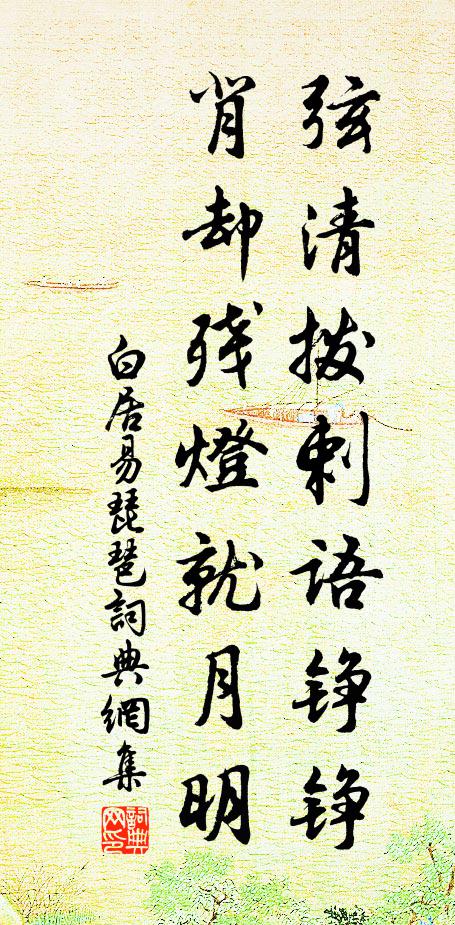 弦清拨刺语铮铮
背却残燈就月明
白居易琵琶詞典網集
詞典网印